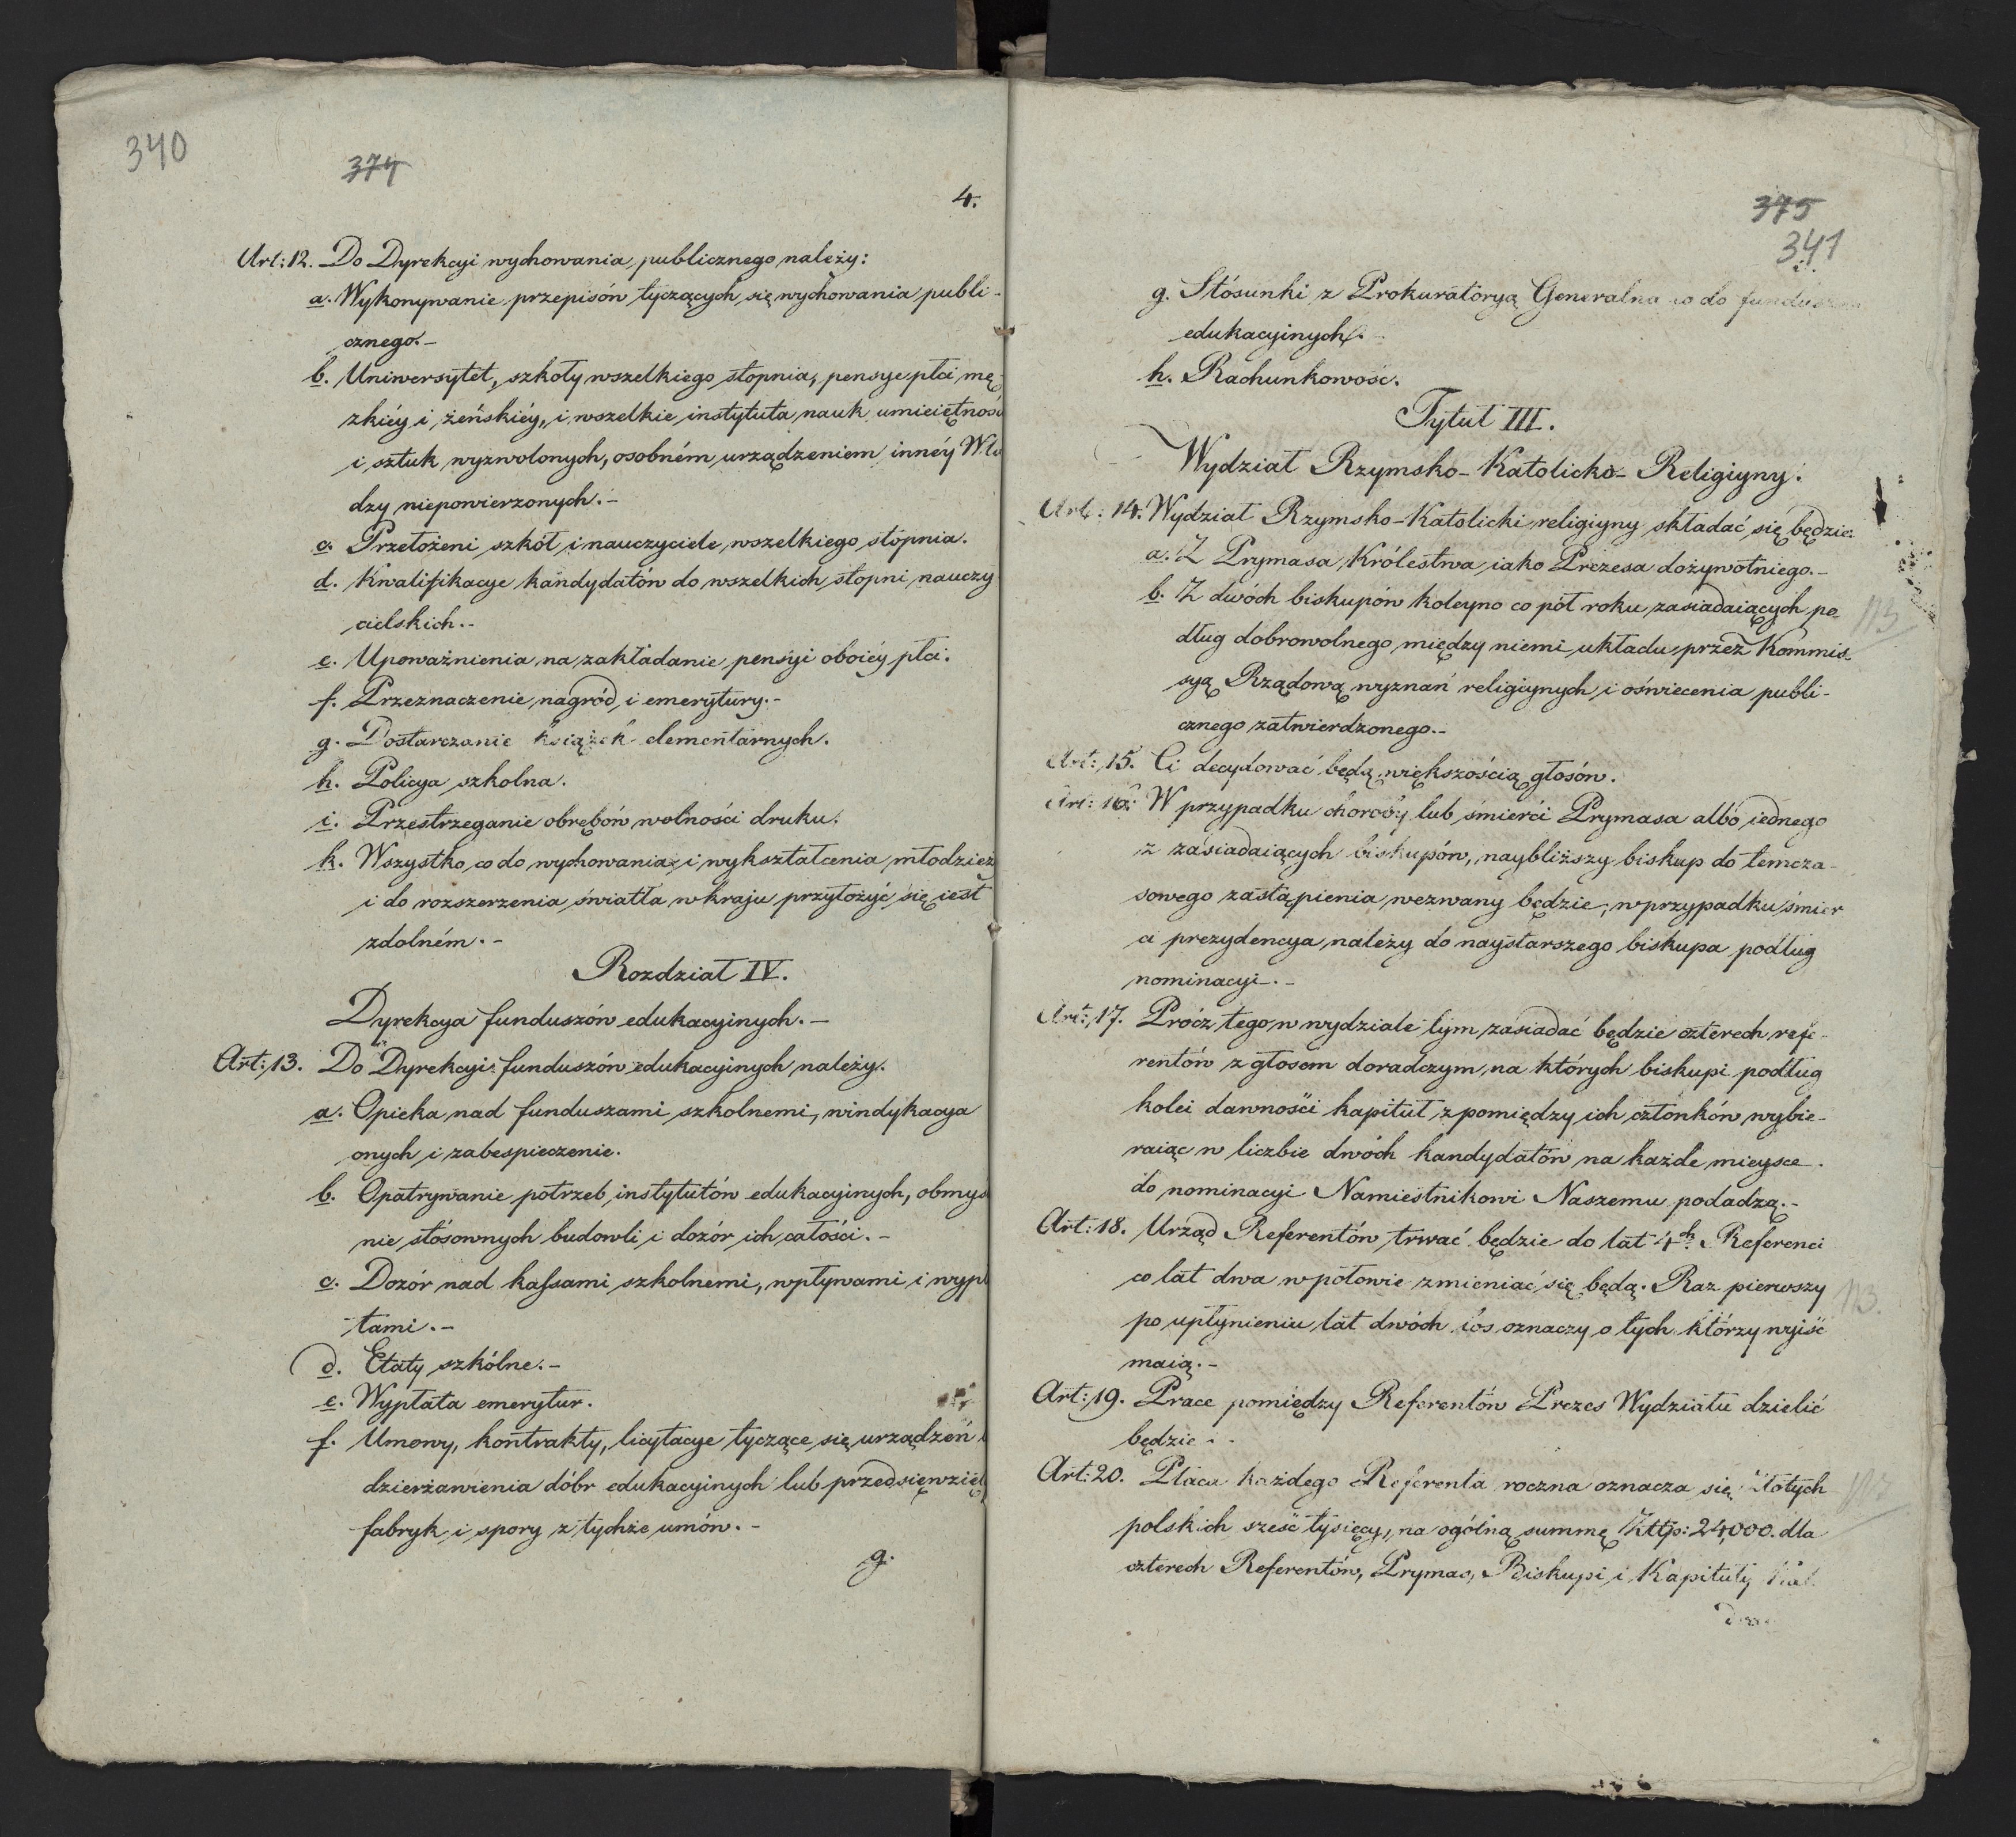 340
374
4.
Art: 12. Do Dyrekcyi wychowania publicznego należy:
a. Wykonywanie przepisów tyczących się wychowania publi-
cznego.-
b. Uniwersytet, szkoły wszelkiego stopnia, pensye płci mę-
zkiéy i żeńskiéy, i wszelkie instytuta nauk umieiętnośc
i sztuk wyzwolonych, osobném urządzeniem innéy Wła
dzy niepowierzonych.-
c. Przełożeni szkół i nauczyciele wszelkiego stopnia.
d. Kwalifikacye kandydatów do wszelkich stopni nauczy
cielskich.-
e. Upoważnienia na zakładanie pensyi oboiéy płci.
f. Przeznaczenie nagród i emerytury.-
g. Dostarczanie książek elementarnych.
h. Policya szkolna.
i. Przestrzeganie obrębów wolności druku.
k. Wszystko, co do wychowania i wykształcenia młodzież
i do rozszerzenia światła w kraju przyłożyć się iest
zdolném.-
Rozdział IV.
Dyrekcya funduszów edukacyinych.-
Art: 13. Do Dyrekcyi funduszów edukacyinych należy.
a. Opieka nad funduszami szkolnemi, windykacya
onych i zabespieczenie.
b. Opatrywanie potrzeb instytutów edukacyinych, obmyś
nie stósownych budowli i dozór ich całości.-
c. Dozór nad kassami szkolnemi, wpływami i wypł
tami.-
d. Etaty szkólne.-
e. Wypłata emerytur.
f. Umowy, kontrakty, licytacye tyczące się urządzeń
dzierżawienia dóbr edukacyinych lub przedsięwzięć
fabryk i spory z tychże umów.-
g.
375
341
g. Stósunki z Prokuratoryą Generalną co do funduszów
edukacyinych.
h. Rachunkowość.
Tytuł III.
Wydział Rzymsko-Katolicko-Religiyny.
Art: 14. Wydział Rzymsko-Katolicki religiyny składać się będzie.
a. Z Prymasa Królestwa iako Prezesa dożywotniego.-
b. Z dwóch biskupów koleyno co pół roku zasiadaiących po-
dług dobrowolnego między niemi układu przez Kommis-
syą Rządową wyznań religiynych i oświecenia publi-
cznego zatwierdzonego.-
Art: 15. Ci decydować będą większością głosów.
Art: 16. W przypadku choroby lub śmierci Prymasa albo iednego
z zasiadaiących biskupów, naybliższy biskup do temcza-
sowego zastąpienia wezwany będzie, w przypadku śmier
ci prezydencya należy do naystarszego biskupa podług
nominacyi.-
Art: 17. Prócz tego w wydziale tym zasiadać będzie czterech refe-
rentów z głosem doradczym, na których biskupi podług
kolei dawności kapituł z pomiędzy ich członków wybie-
raiąc w liczbie dwóch kandydatów na każde mieysce
do nominacyi Namiestnikowi Naszemu podadzą.-
Art: 18. Urząd Referentów trwać będzie do lat 4ch. Referenci
co lat dwa w połowie zmieniać się będą. Raz pierwszy
po upłynieniu lat dwóch los oznaczy o tych którzy wyiść
maią.-
Art: 19. Prace pomiędzy Referentów Prezes Wydziału dzielić
będzie.-
Art: 20. Płaca każdego Referenta roczna oznacza się Złotych
polskich sześć tysięcy, na ogólną summę Złtp: 24,000. dla
czterech Referentów, Prymas, Biskupi i Kapituły